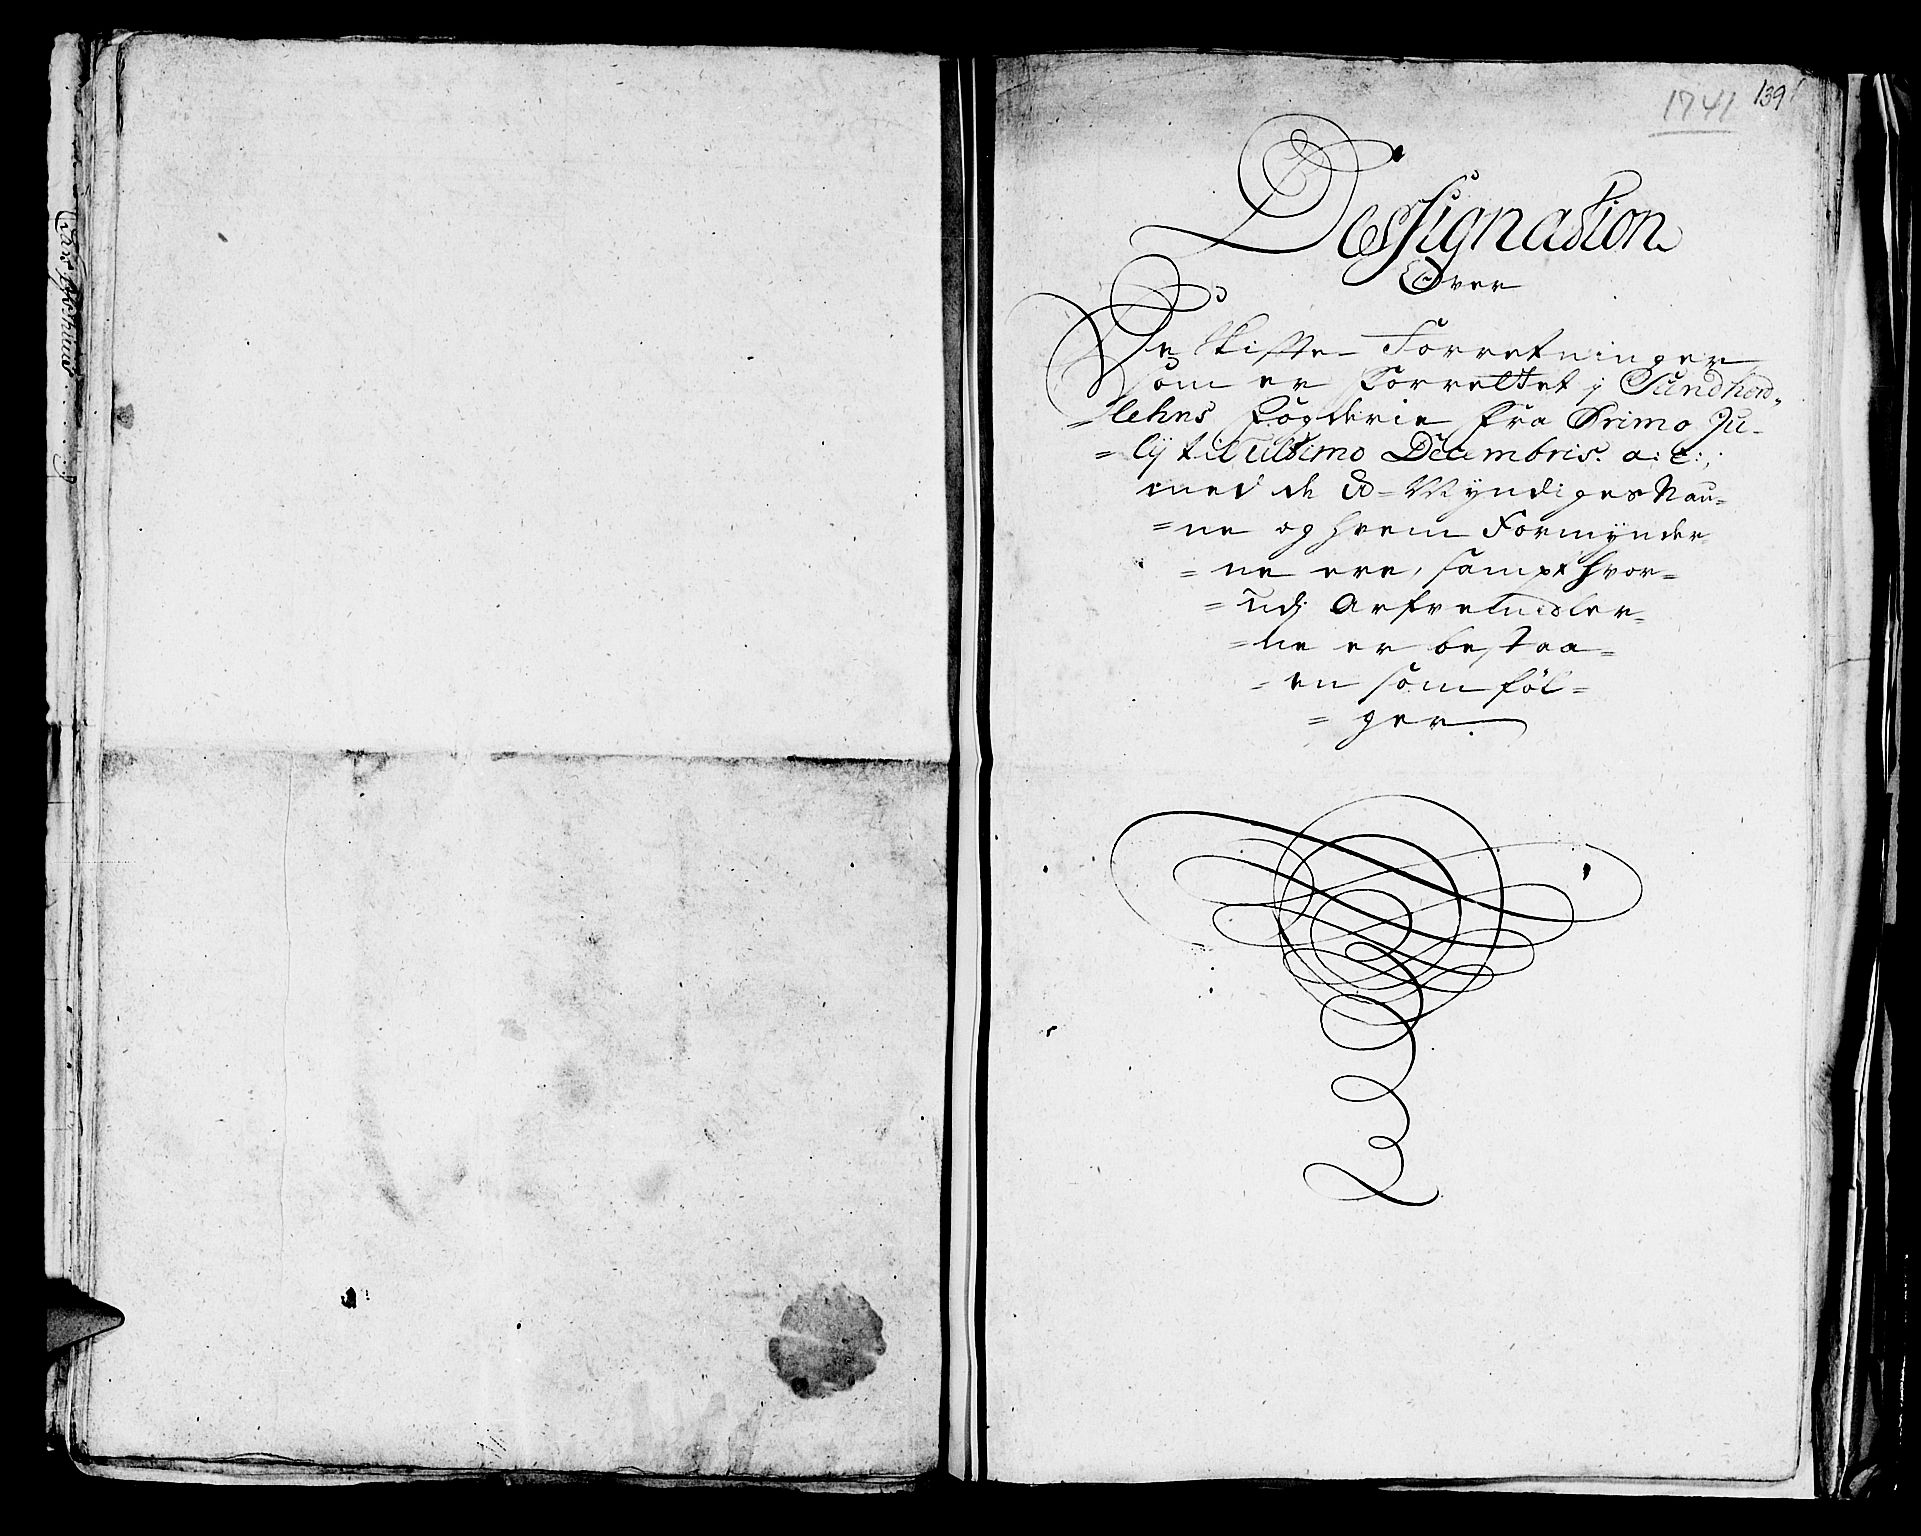 1741 139
Dessignation
Over
De Skifte Forretninger
som er forrettet j Sundhord„
lehns fogderie fra Primo Ju-
= ly til ultimo Decembris. a: c:,
med de U-Myndiges Nau=
=ne og hvem Formynder=
=ne ere, sampt hvor=
=udj Arfvemidler=
=ne er bestaa=
=en som föl=
=ger.